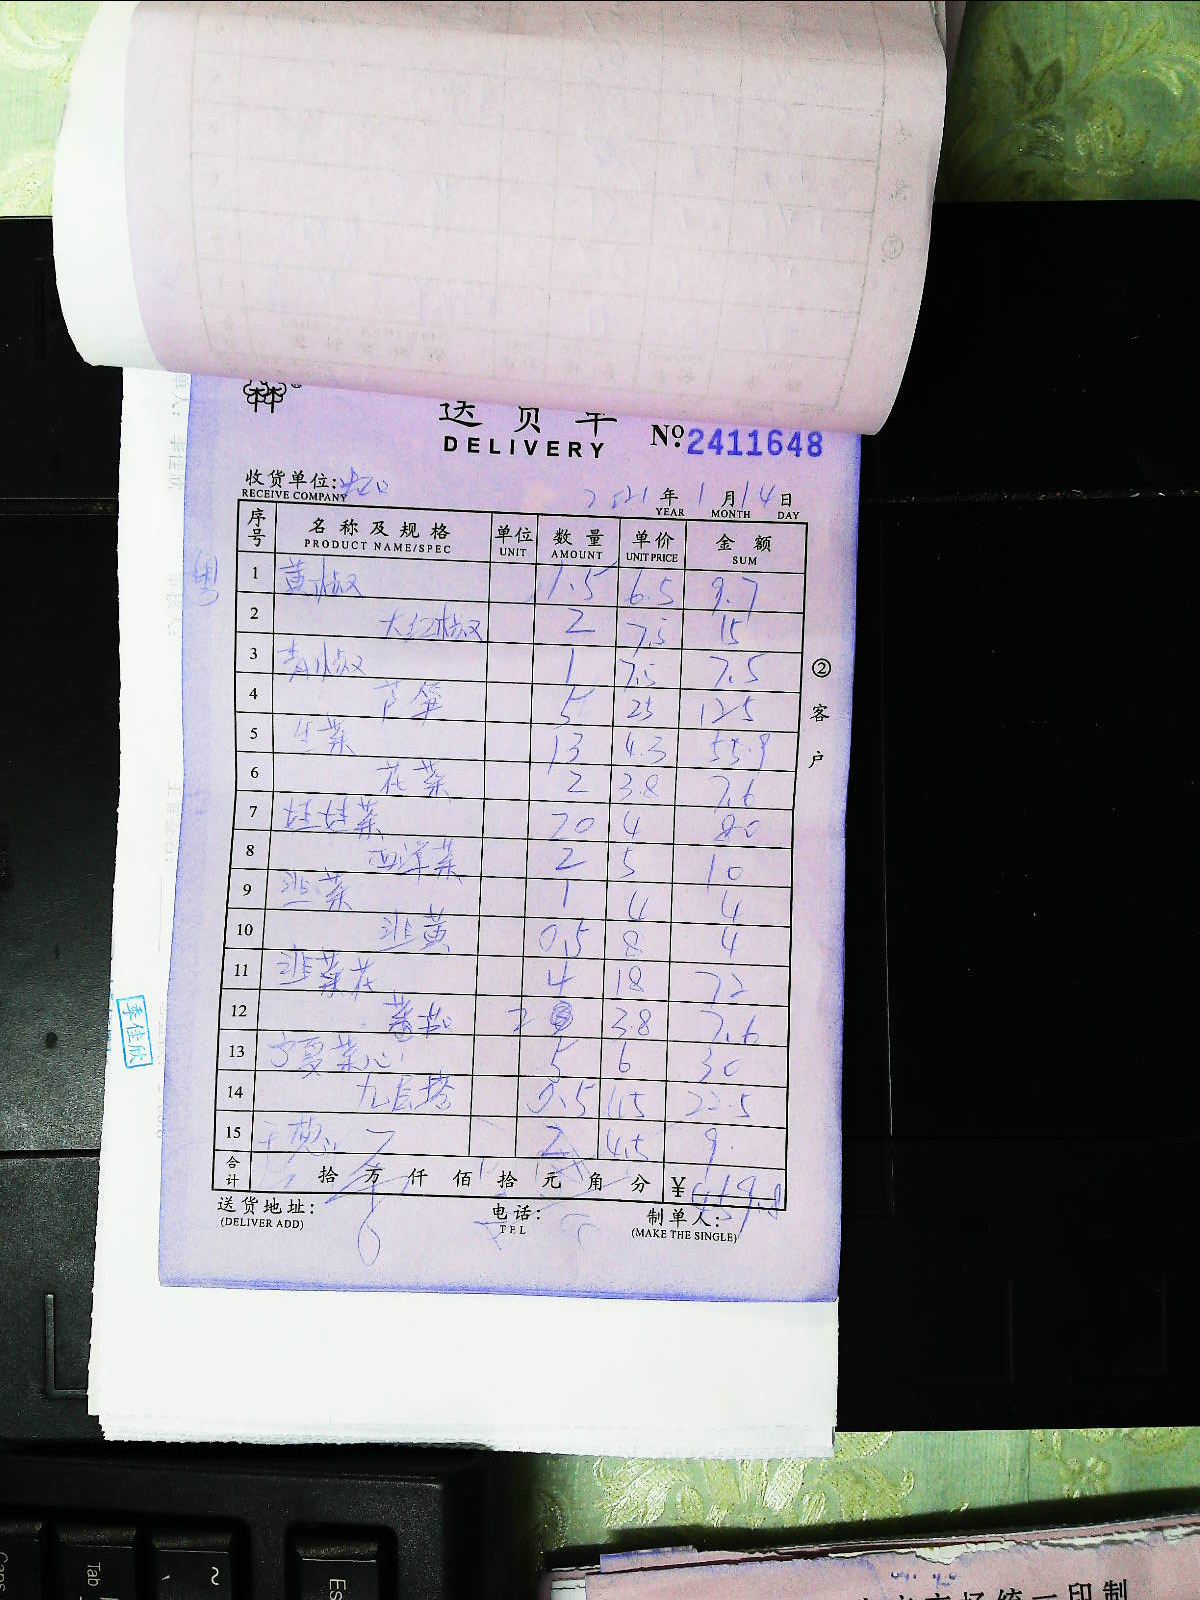 送货单
DELIVERY
№ 2411648
收货单位:
RECEIVE COMPANY
2021年1月14日
YEAR MONTH DAY
序号 名称及规格 单位 数量 单价 金额
PRODUCT NAME/SPEC UNIT AMOUNT UNIT PRICE SUM
粤
1 黄椒 1.5 6.5 9.7
2 大红椒 2 7.5 15
3 青椒 1 7.5 7.5
4 芦笋 5 25 125
5 生菜 13 4.3 55.9
6 花菜 2 3.8 7.6
7 娃娃菜 20 4 80
8 西洋菜 2 5 10
9 韭菜 1 4 4
10 韭黄 0.5 8 4
11 韭菜花 4 18 72
12 蕃茄 2 3.8 7.6
13 宁夏菜心 5 6 30
14 九层塔 0.5 45 22.5
15 干葱 2 4.5 9
合计 拾 万 仟 佰 拾 元 角 分 ¥ 459.8
送货地址: 电话: 制单人:
(DELIVER ADD) TEL (MAKE THE SINGLE)
② 客户
李佳欣
Tab
Esc
~
市场统一印制